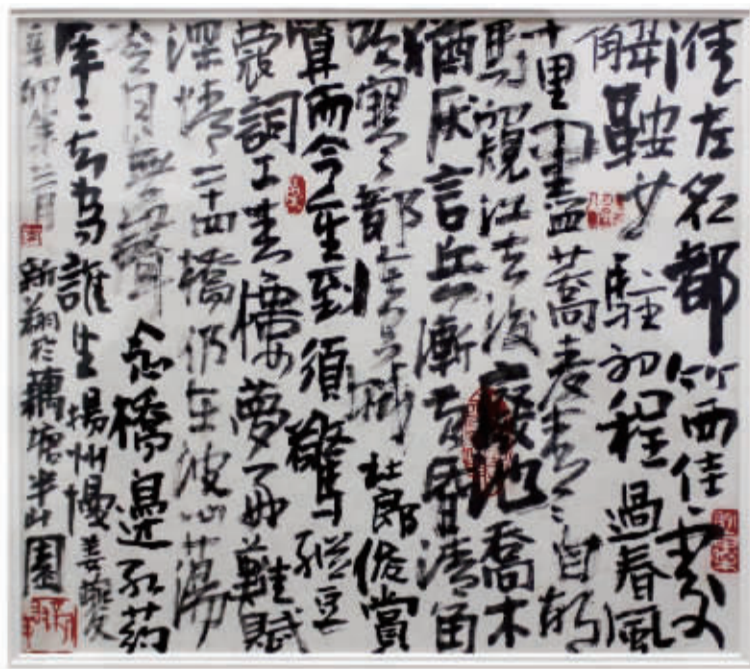 淮左名都竹西佳處
解鞍少駐初程過春風
十里盡蕎麥青々自胡
馬窺江去後廢池喬木
猶厭言兵漸黃昏清角
吹寒都在空城杜郎俊賞
算而今重到須驚縱豆
蔻詞工青樓夢好難賦
深情二十四橋仍在波心蕩
冷月無聲念橋邊紅药
年々知為誰生揚州慢姜夔
辛卯年六月新翔於藕塘半山園